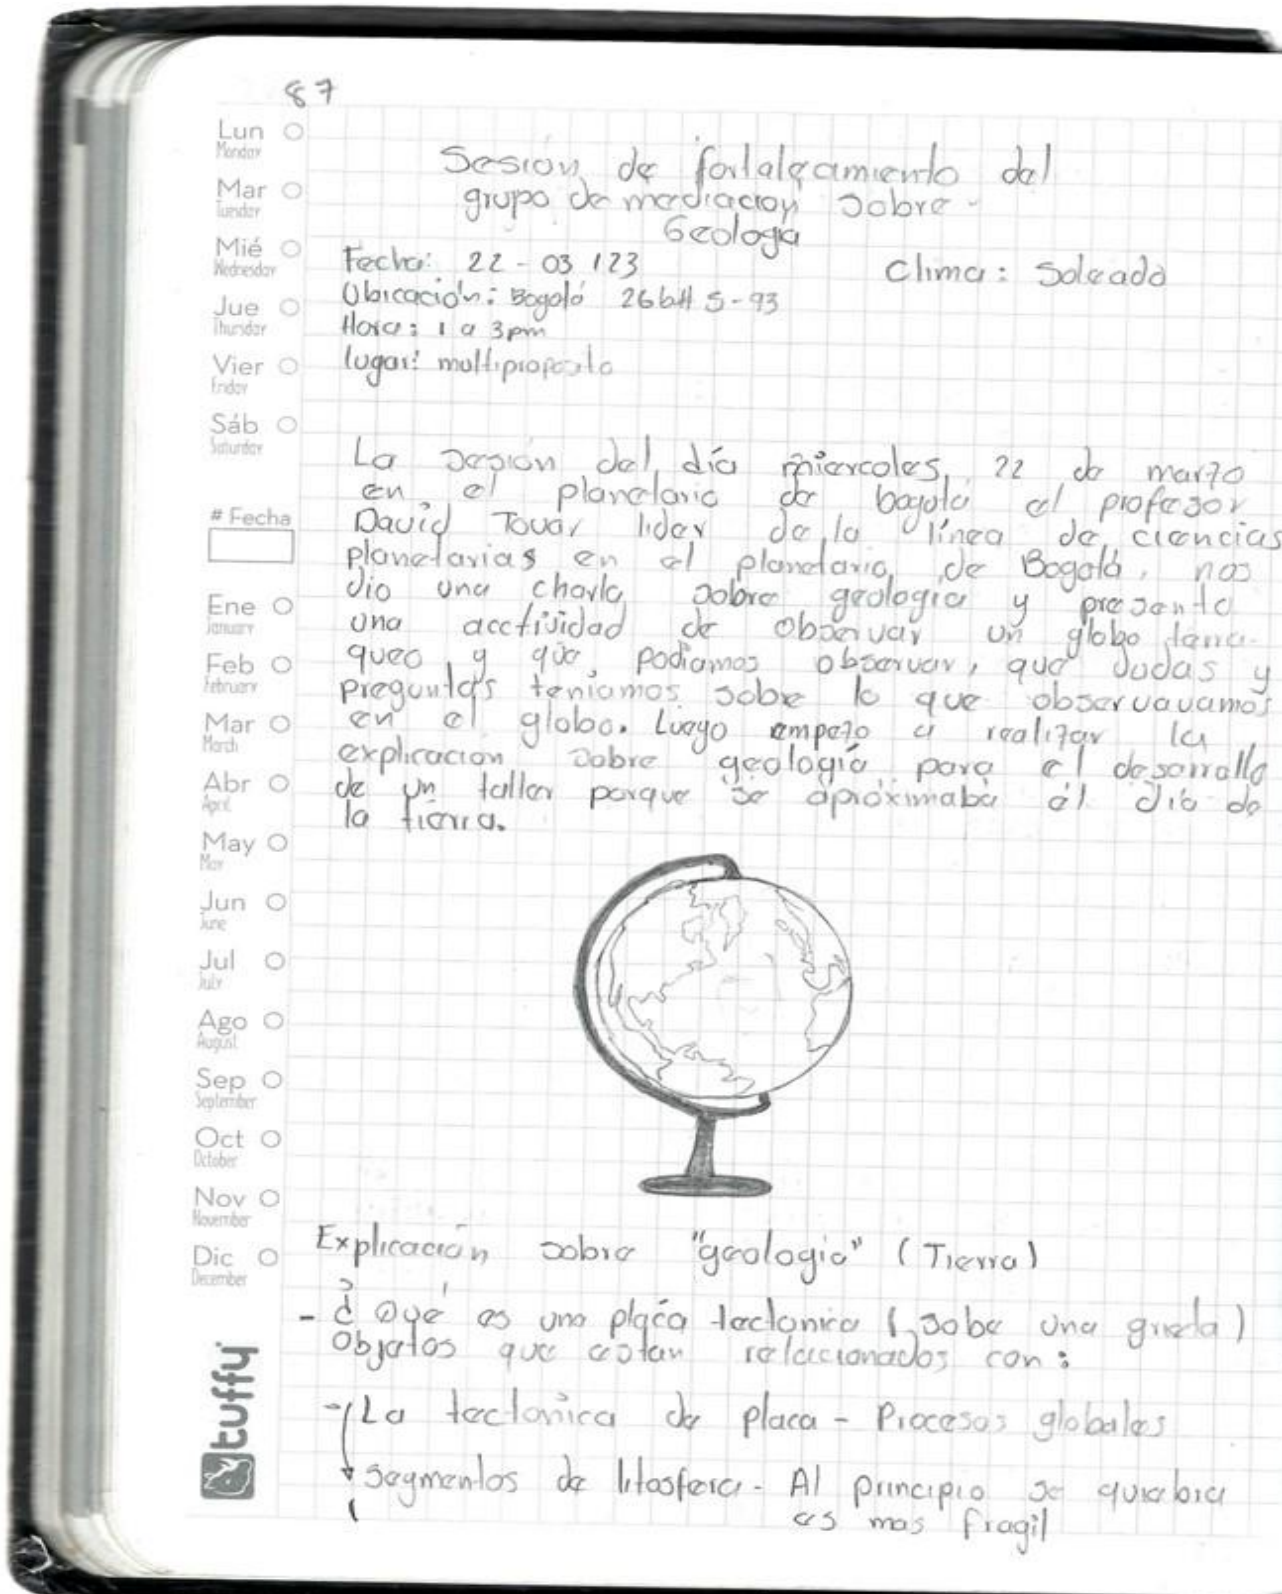 87
Lun
Monday
Mar
Tuesday
Mié
Wednesday
Jue
Thursday
Vier
Friday
Sáb
Saturday
# Fecha
Ene
January
Feb
February
Mar
March
Abr
April
May
May
Jun
June
Jul
July
Ago
August
Sep
September
Oct
October
Nov
November
Dic
December
tuffy
Sesión de fortalecamiento del
grupo de mediación sobre -
Geologia
Fecha: 22 - 03 / 23
Clima: Soleado
Ubicación: Bogotá 26b# 5-93
Hora: 1 a 3pm
lugar: multiproposito
La sesión del día miercoles, 22 de marzo
en el planetario de bogota el profesor
David Tovar lider de la línea de ciencias
planetarias en el planetario de Bogotá, nos
dio una charla sobre geologia y presento
una acctividad de observar un globo terra-
queo y que podiamos observar, que dudas y
preguntas teniamos sobre lo que observavamos
en el globo. Luego empezo a realizar la
explicacion sobre geología para el desarrollo
de un taller porque se aproximaba el día de
la tierra.
Explicación sobre "geologia" (Tierra)
- ¿Qué es una placa tectonica (sobe una grieta)
Objetos que estan relacionados con:
- La tectonica de placa - Procesos globales
Segmentos de litosfera - Al principio se quiebra
es mas fragil